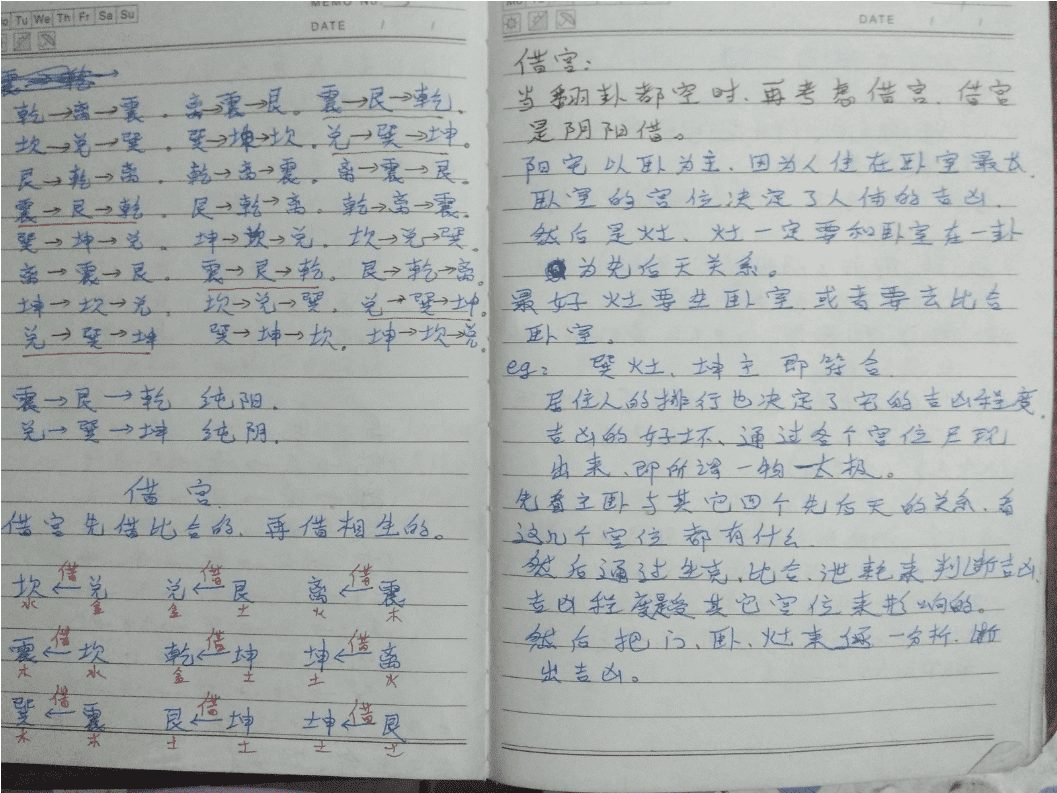 Tu We Th Fr Sa Su
MEMO NO.
DATE / /
乾→离→震. 离→震→艮. 震→艮→乾.
坎→兑→巽. 巽→坤→坎. 兑→巽→坤.
艮→乾→离. 乾→离→震. 离→震→艮.
震→艮→乾. 艮→乾→离. 乾→离→震.
巽→坤→兑. 坤→坎→兑. 坎→兑→巽.
离→震→艮. 震→艮→乾. 艮→乾→离.
坤→坎→兑. 坎→兑→巽. 兑→巽→坤.
兑→巽→坤 巽→坤→坎. 坤→坎→兑.
震→艮→乾 纯阳.
兑→巽→坤 纯阴.
借宫
借宫先借比合的,再借相生的。
坎←借兑 兑←借艮 离←借震
水 金 金 土 火 木
震←借坎 乾←借坤 坤←借离
木 水 金 土 土 火
巽←借震 艮←借坤 坤←借艮
木 木 土 土 土 土
DATE / /
借宫:
当翻卦都空时,再考虑借宫.借宫
是阴阳借。
阳宅以卧为主.因为人住在卧室最长.
卧室的宫位决定了人体的吉凶.
然后是灶、灶一定要和卧室在一卦
为先后天关系。
最好灶要生卧室.或者要去比合
卧室。
eg: 巽灶、坤主即符合.
居住人的排行也决定了宅的吉凶程度.
吉凶的好坏、通过各个宫位尽现
出来、即所谓一物一太极。
先看主卧与其它四个先后天的关系.看
这几个宫位都有什么
然后通过生克、比合、泄耗来判断吉凶.
吉凶程度是受其它宫位来影响的。
然后把门、卧、灶来逐一分析.断
出吉凶。